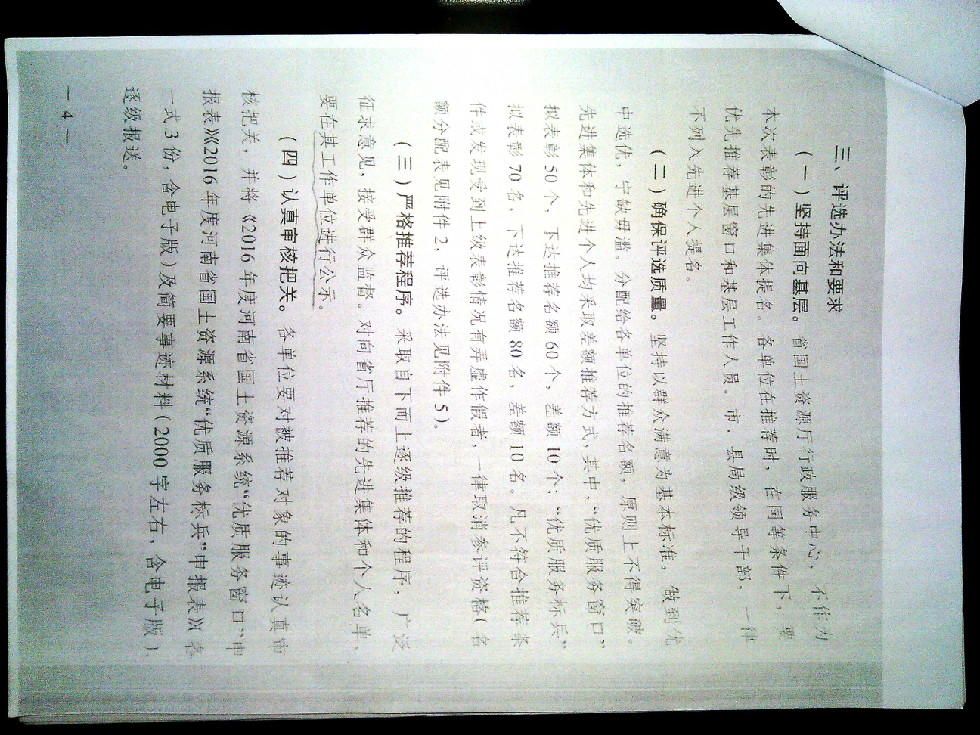 三、评选办法和要求
（一）坚持面向基层。省国土资源厅行政服务中心，不作为
本次表彰的先进集体提名。各单位在推荐时，在同等条件下，要
优先推荐基层窗口和基层工作人员，市、县局级领导干部，一律
不列入先进个人提名。
（二）确保评选质量。坚持以群众满意为基本标准，做到优
中选优，宁缺毋滥。分配给各单位的推荐名额，原则上不得突破。
先进集体和先进个人均采取差额推荐方式，其中，“优质服务窗口”
拟表彰50个，下达推荐名额60个，差额10个；“优质服务标兵”
拟表彰70名，下达推荐名额80名，差额10名。凡不符合推荐条
件或发现受到上级表彰情况有弄虚作假者，一律取消参评资格（名
额分配表见附件2，评选办法见附件5）。
（三）严格推荐程序。采取自下而上逐级推荐的程序，广泛
征求意见，接受群众监督。对向省厅推荐的先进集体和个人名单，
要在其工作单位进行公示。
（四）认真审核把关。各单位要对被推荐对象的事迹认真审
核把关，并将《2016年度河南省国土资源系统“优质服务窗口”申
报表》《2016年度河南省国土资源系统“优质服务标兵”申报表》（各
一式3份，含电子版）及简要事迹材料（2000字左右，含电子版），
逐级报送。
— 4 —